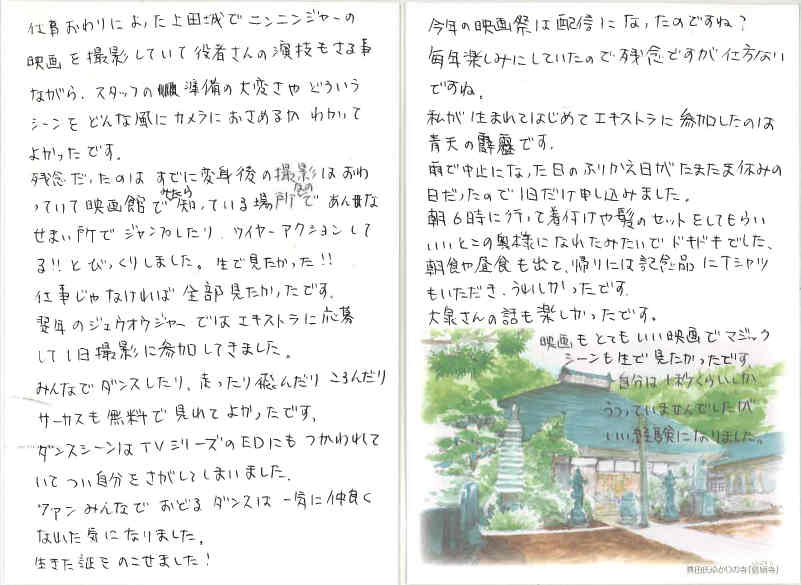 今年の映画祭は配信になったのですね?
毎年楽しみにしていたので残念ですが仕方ない
ですね。
私が生まれてはじめてエキストラに参加したのは
青天の霹靂です。
雨で中止になった日のふりかえ日がたまたま休みの
日だったので1日だけ申し込みました。
朝6時に行って着付けや髪のセットをしてもらい
いいとこの奥様になれたみたいでドキドキでした、
朝食や昼食も出て、帰りには記念品にTシャツ
もいただき、うれしかったです.
大泉さんの話も楽しかったです。
映画もとてもいい映画でマジック
シーンも生で見たかったです
自分は1秒くらいしか
うつっていませんでしたが
いい経験になりました。
真田氏ゆかりの寺「信綱寺」
仕事おわりによった上田城でニンニンジャーの
映画を撮影していて役者さんの演技もさる事
ながら、スタッフの準備の大変さやどういう
シーンをどんな風にカメラにおさめるかわかって
よかったです.
残念だったのはすでに変身後の撮影はおわ
っていて映画館で見たら知っている場所でこの あんな
せまい所でジャンプしたり、ワイヤーアクションして
る!!とびっくりしました。生で見たかった!!
仕事じゃなければ全部見たかったです.
翌年のジュウオウジャーではエキストラに応募
して1日撮影に参加してきました。
みんなでダンスしたり、走ったり飛んだりころんだり
サーカスも無料で見れてよかったです.
ダンスシーンはTVシリーズのEDにもつかわれて
いてつい自分をさがしてしまいました.
ファンみんなでおどるダンスは一気に仲良く
なれた気になりました。
生きた証をのこせました!